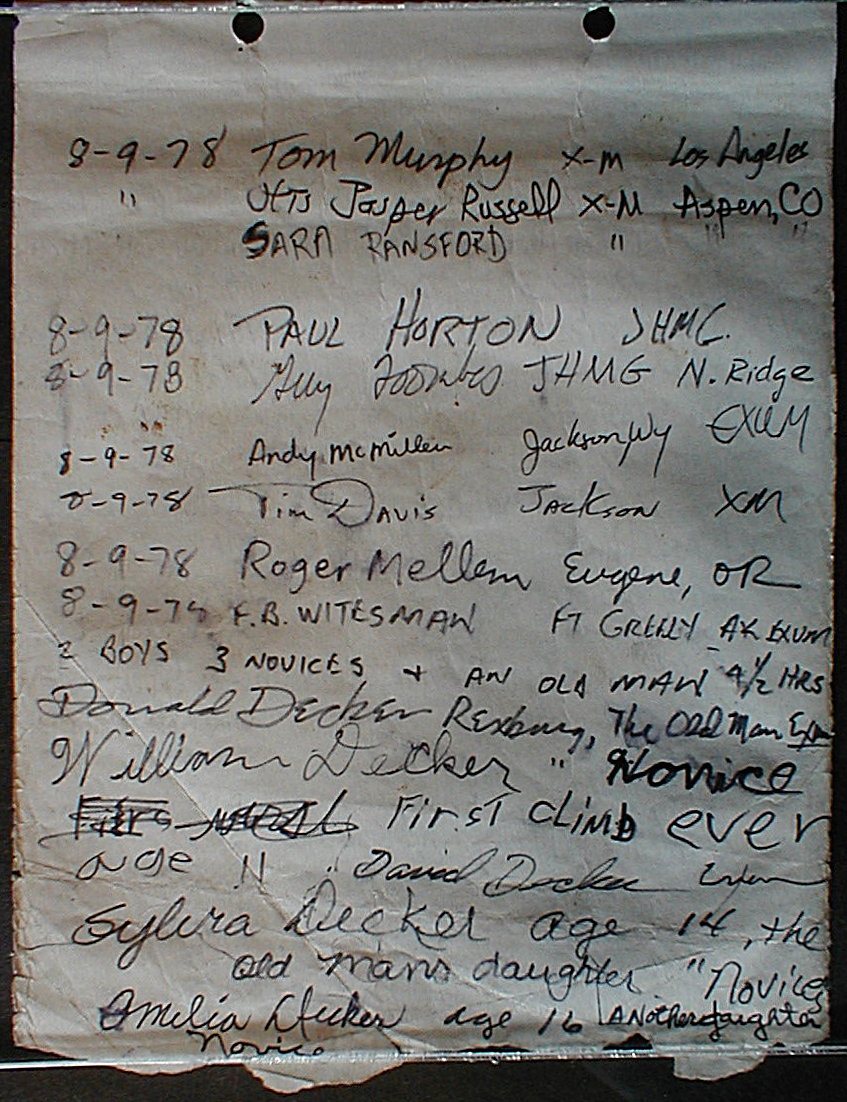 8-9-78 Tom Murphy X-M Los Angeles
" Jasper Russell X-M Aspen, CO
" SARA RANSFORD " " "
8-9-78 PAUL HORTON JHMG.
8-9-78 Guy Toombes JHMG N. Ridge
8-9-78 Andy McMillen Jackson, Wy EXUM
8-9-78 Tim DAVIS JACKSON XM
8-9-78 Roger Mellem Eugene, OR
8-9-78 F.B. WITESMAN FT GREELY AK EXUM
2 BOYS 3 NOVICES + AN OLD MAN 4 1/2 HRS
Donald Decker Rexburg, The Old Man Exum
William Decker " Novice
First climb ever
age 11 David Decker Exum
Sylvia Decker age 14, the
old mans daughter "Novice
Amelia Decker age 16 Another daughter
Novice